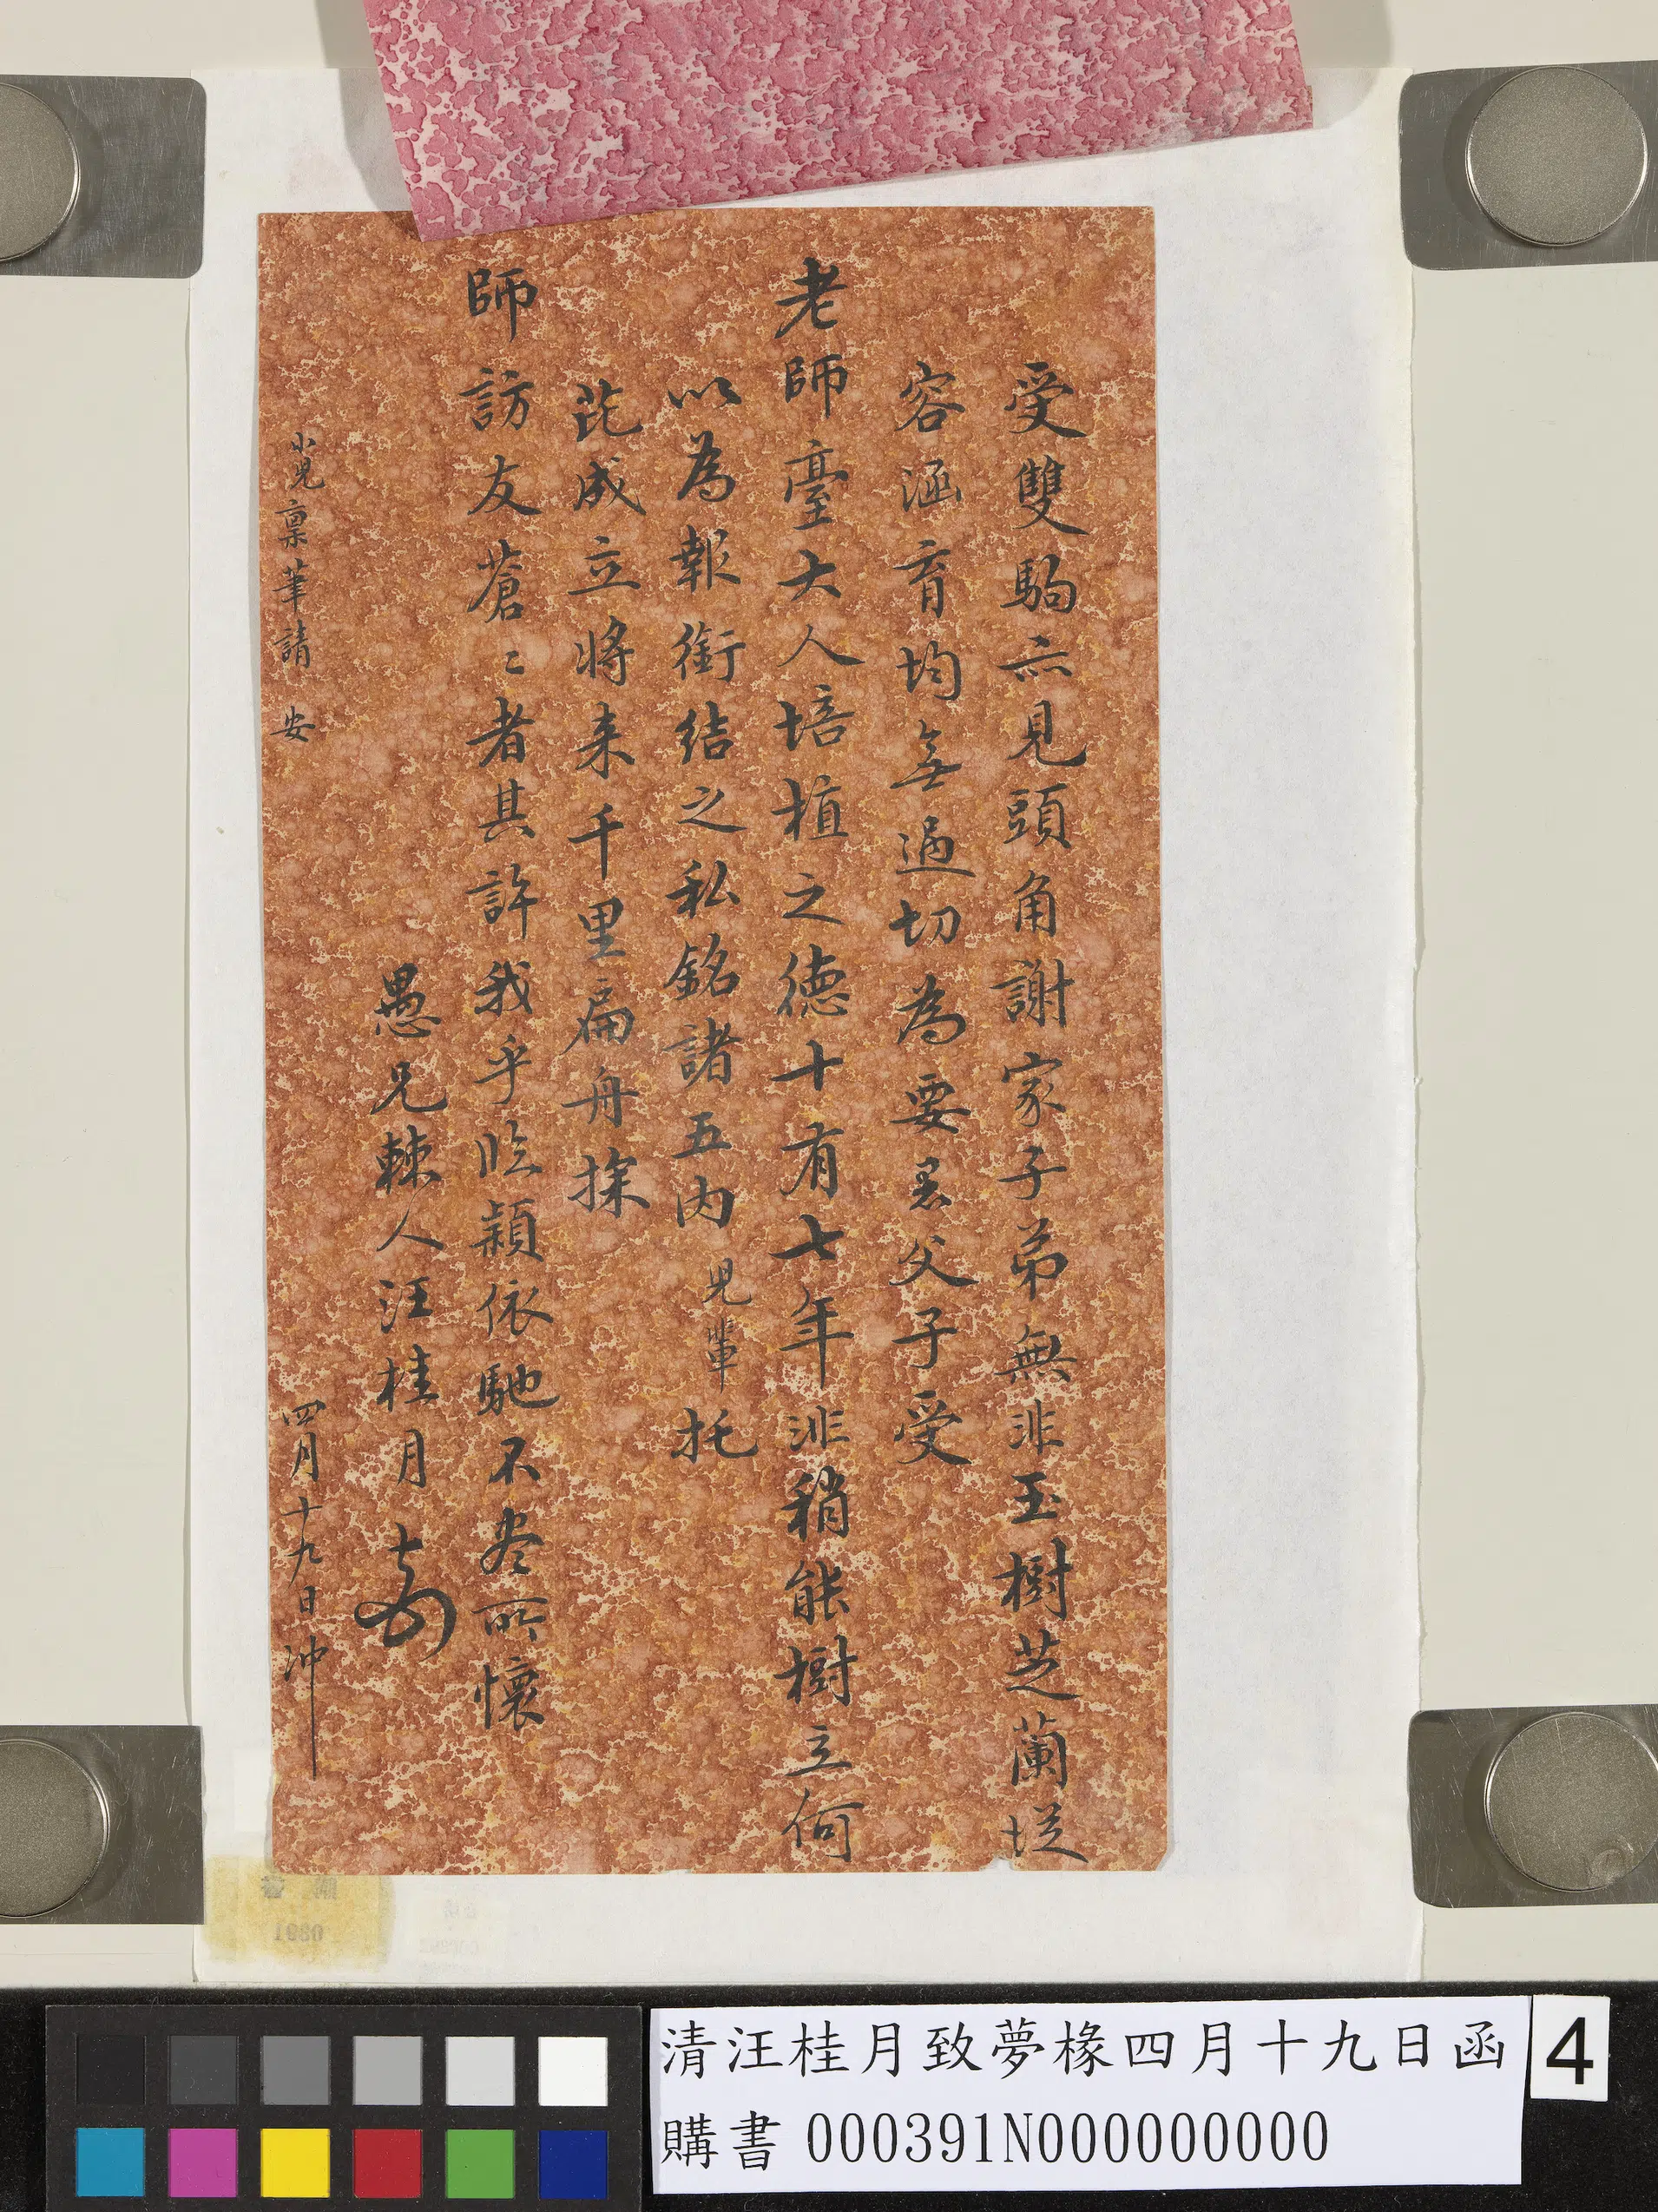 受雙駒亦見頭角謝家子弟無非玉樹芝蘭從
容涵育均無過切為要愚父子受
老師臺大人培植之德十有七年非稍能樹立何
以為報銜結之私銘諸五內兒輩托
芘成立將来千里扁舟探
師訪友蒼〻者其許我乎臨穎依馳不尽所懷
愚兄棘人汪桂月
小兒稟筆請安
四月十九日沖
清汪桂月致夢椽四月十九日函
購書 000391N000000000
4